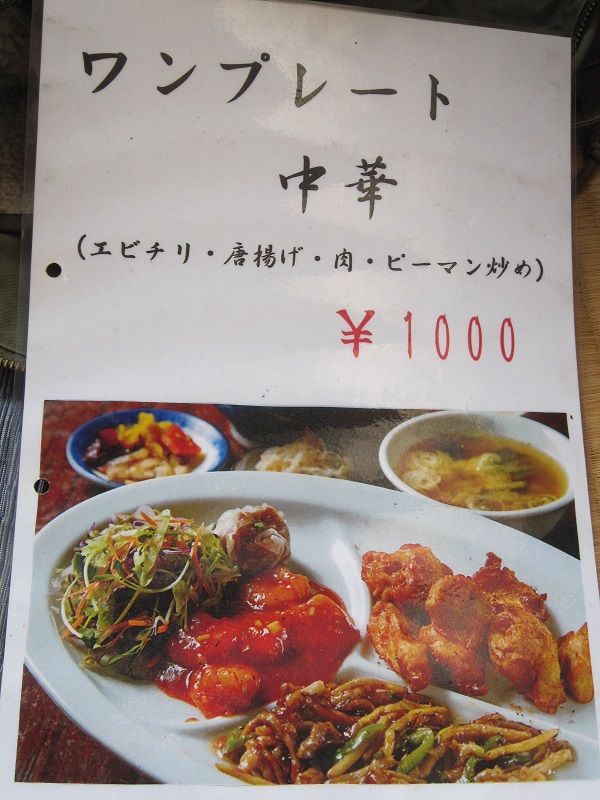 ワンプレート
中華
(エビチリ・唐揚げ・肉・ピーマン炒め)
¥1000